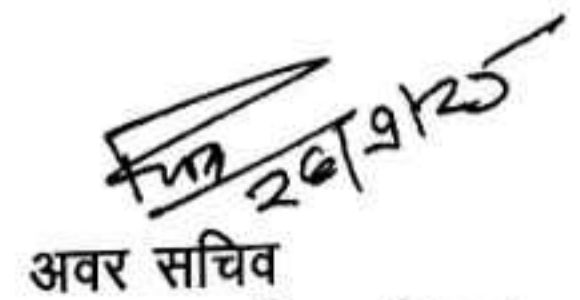 26/9/25
अवर सचिव